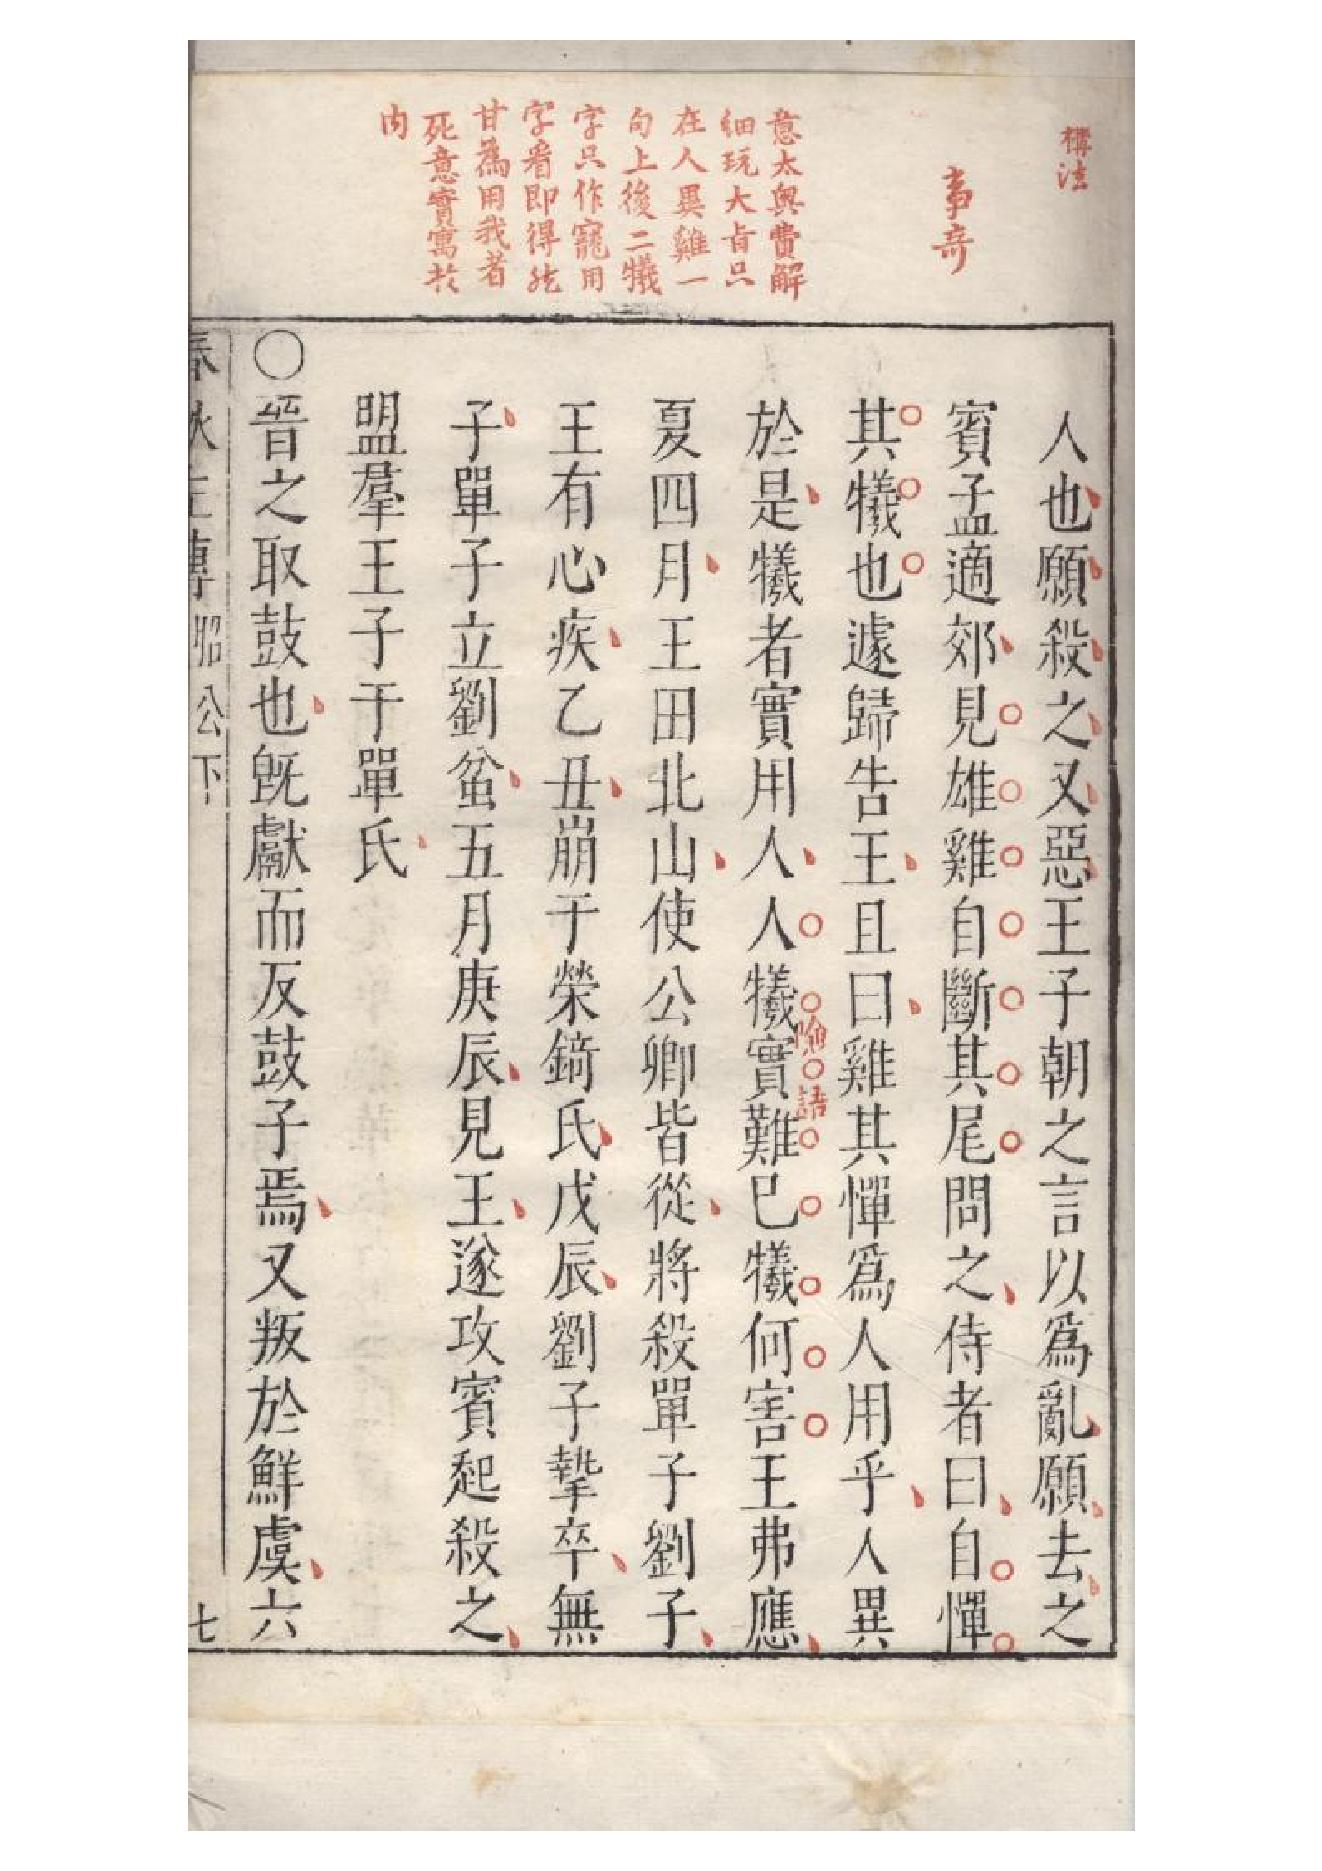 構法
事奇
意太奧費解
細玩大旨只
在人異雞一
句上後二犧
字只作寵用
字看即得然
甘為用我者
死意實寓於
內
人也願殺之又惡王子朝之言以爲亂願去之
賓孟適郊見雄雞自斷其尾問之侍者曰自憚
其犧也遽歸告王且曰雞其憚爲人用乎人異
於是犧者實用人人犧實難已犧何害王弗應
險語
夏四月王田北山使公卿皆從將殺單子劉子
王有心疾乙丑崩于榮錡氏戊辰劉子摯卒無
子單子立劉蚠五月庚辰見王遂攻賓起殺之
盟羣王子于單氏
○晉之取鼓也旣獻而反鼓子焉又叛於鮮虞六
春秋左傳 昭公下 七